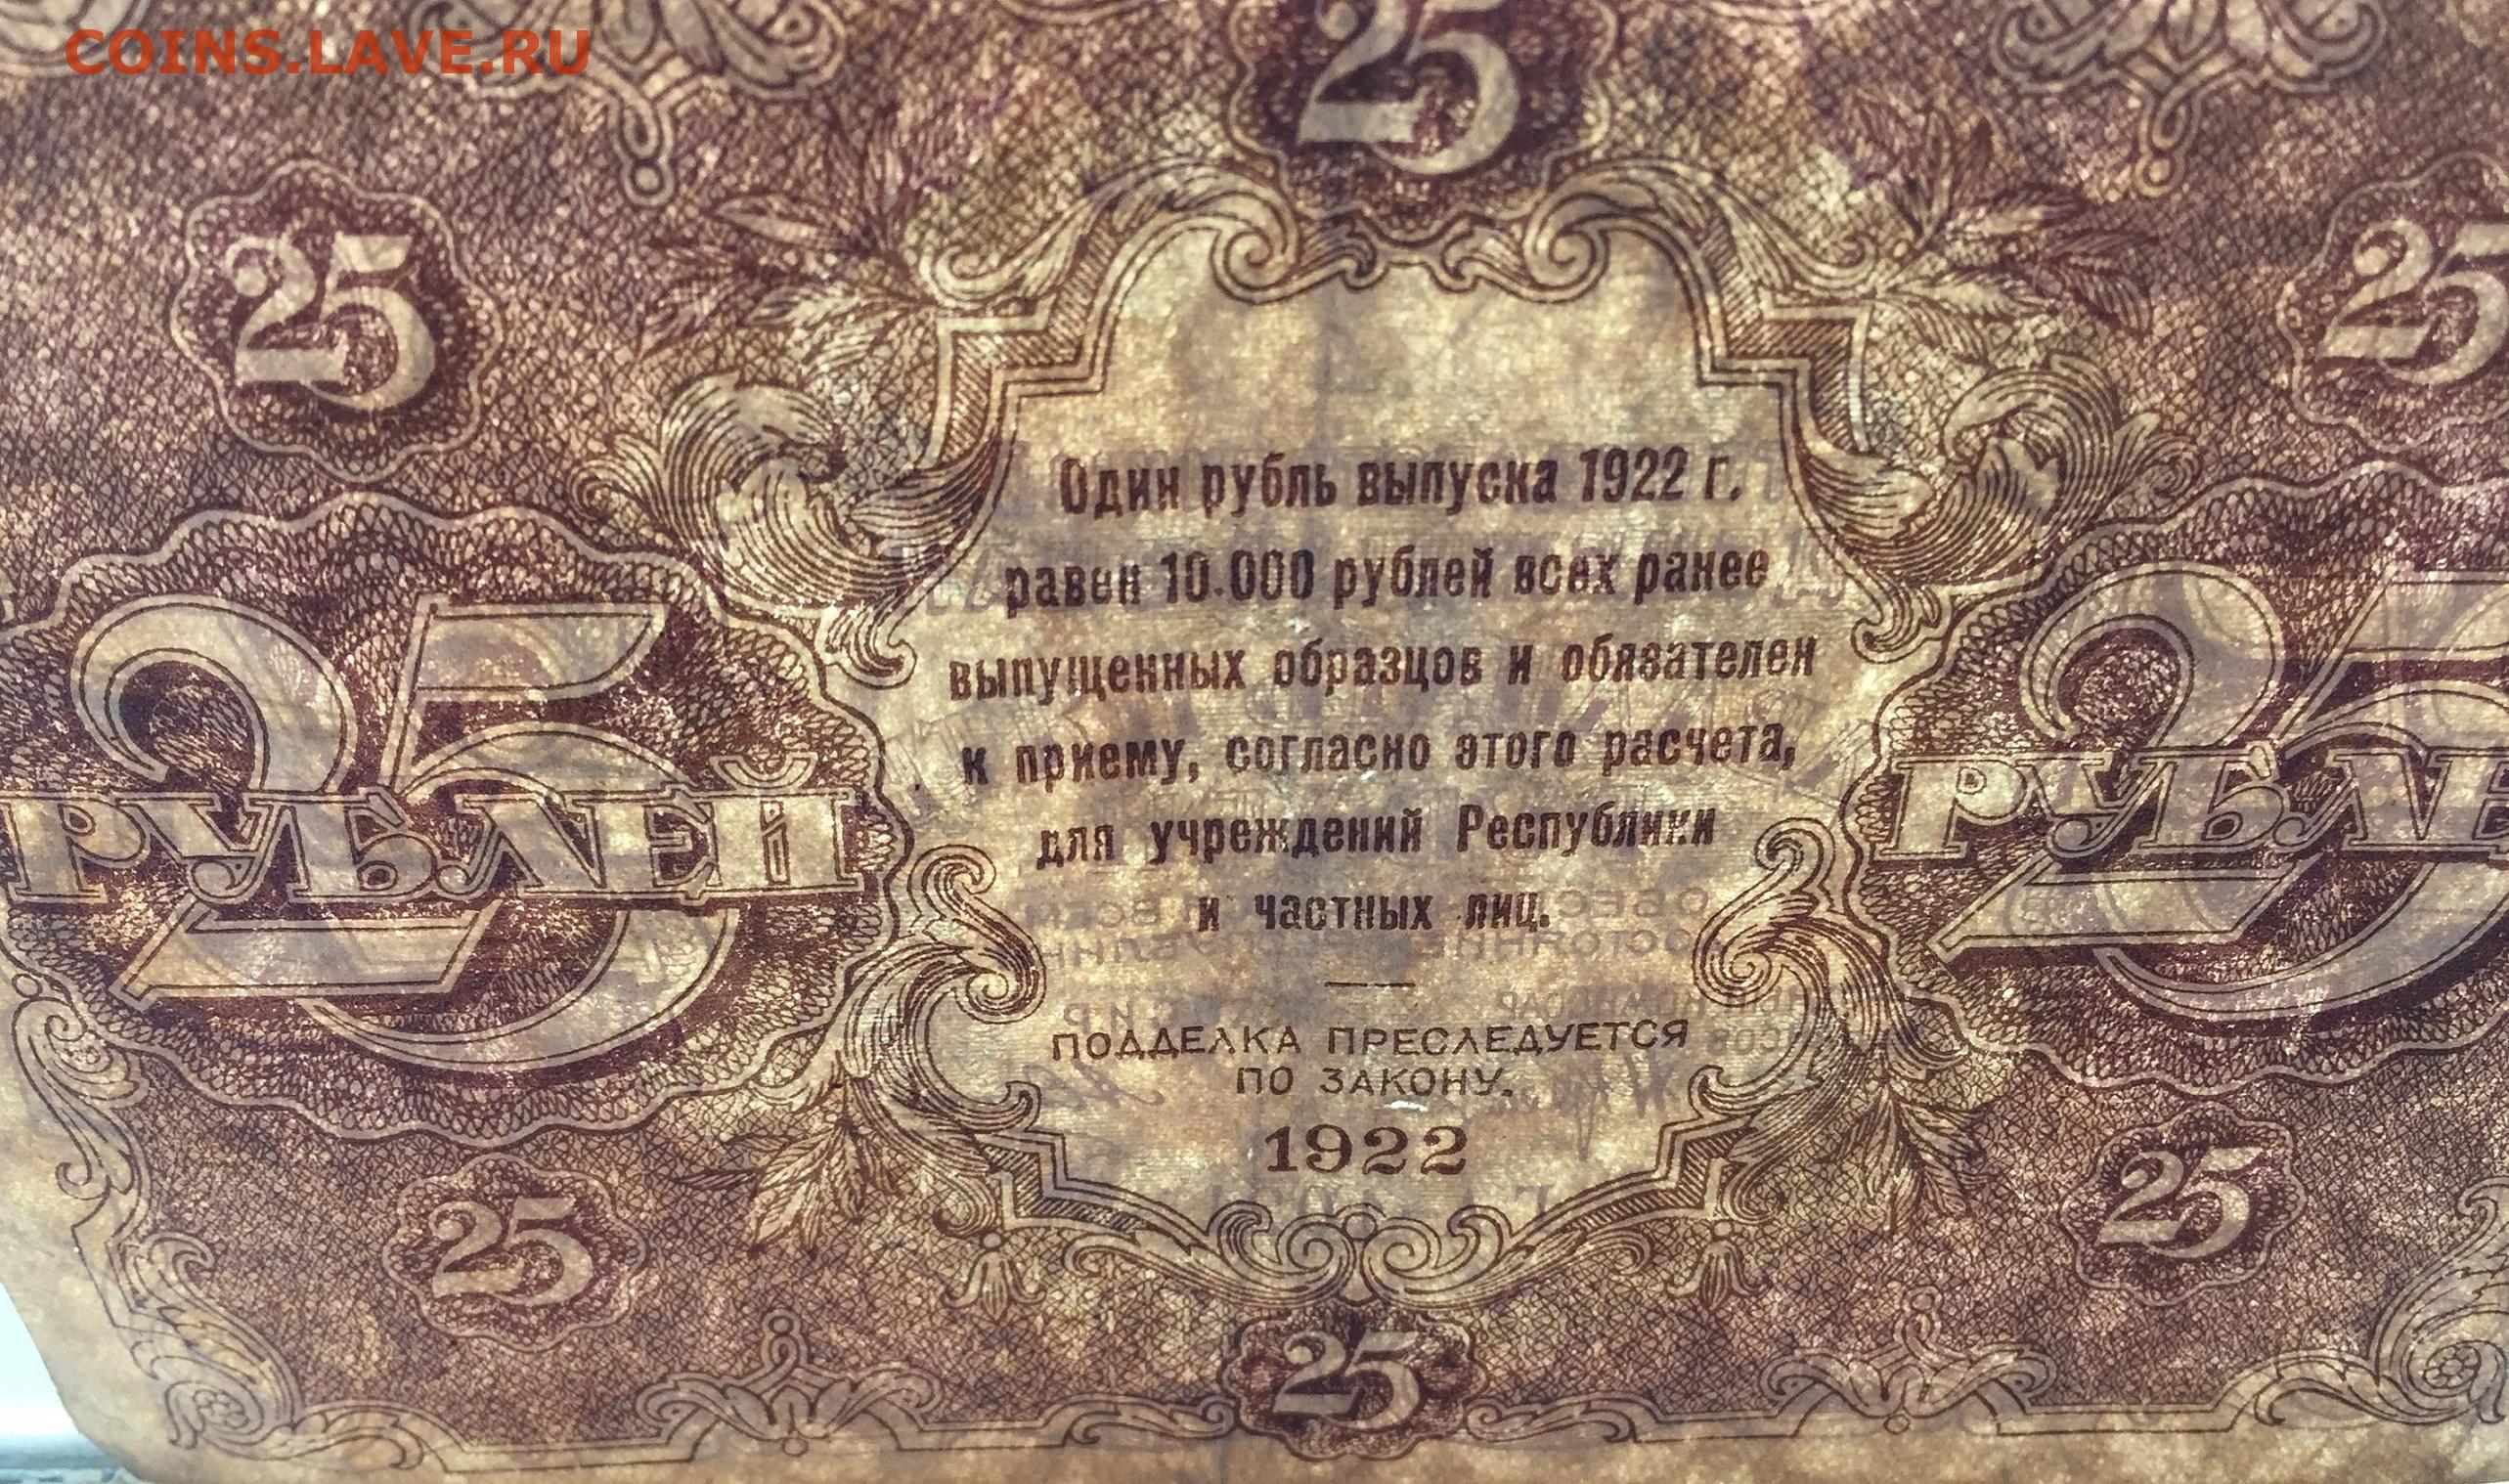 COINS.LAVE.RU
25
25
25
Один рубль выпуска 1922 г.
равен 10.000 рублей всех ранее
выпущенных образцов и обязателен
к приему, согласно этого расчета,
для учреждений Республики
и частных лиц.
25
РУБЛЕЙ
25
РУБЛЕ
ПОДДЕЛКА ПРЕСЛЕДУЕТСЯ
ПО ЗАКОНУ.
1922
25
25
25